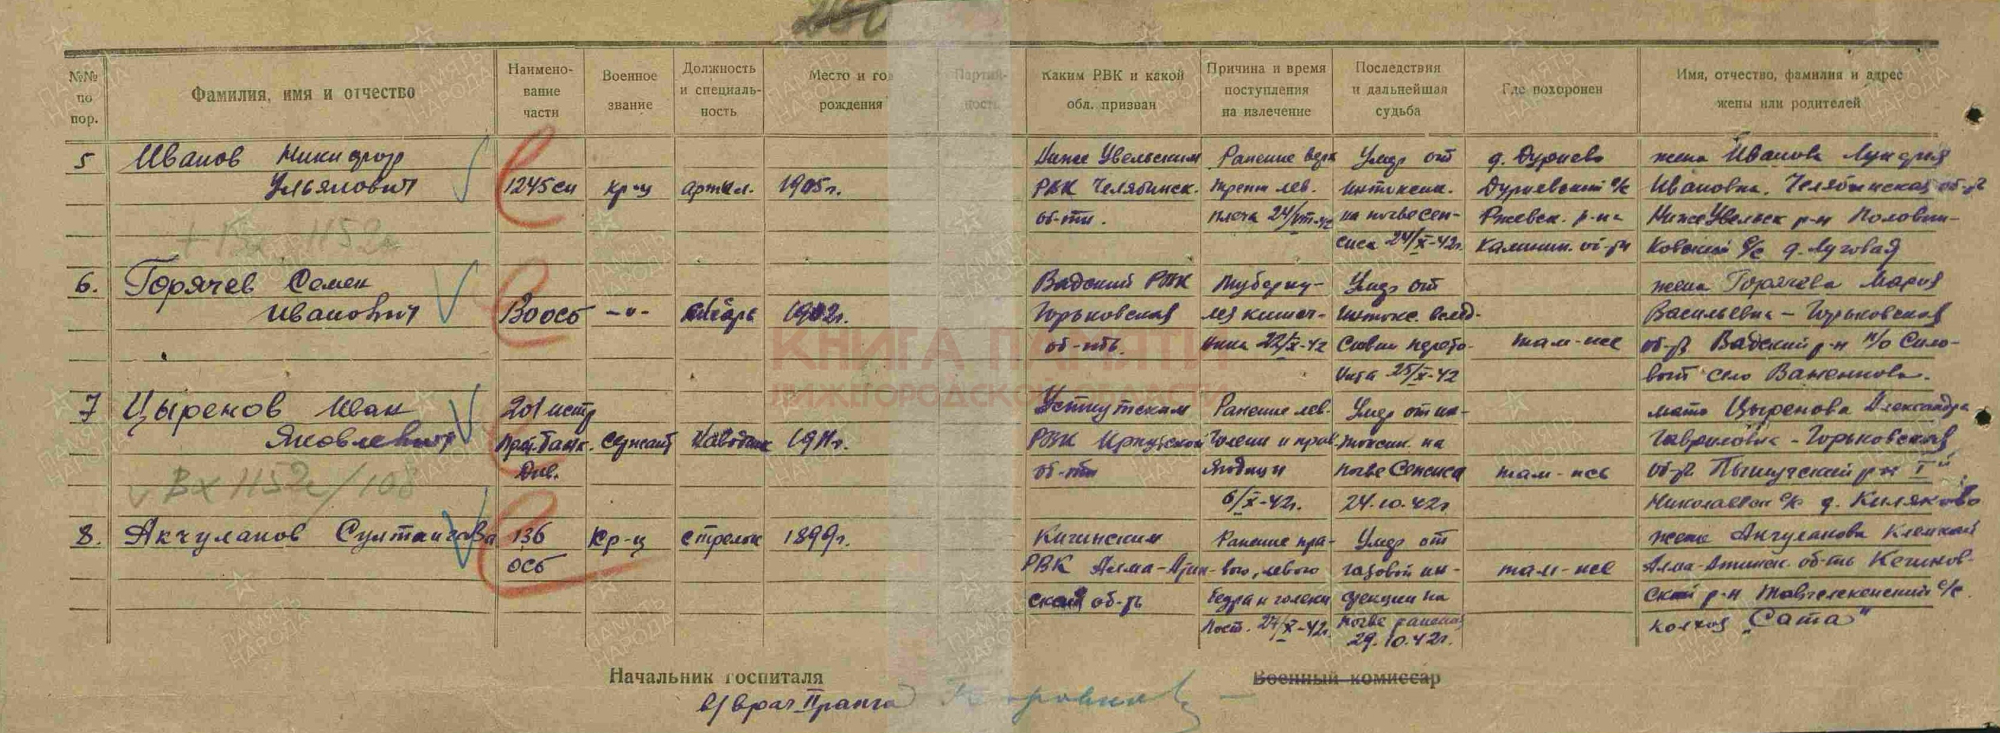 №№ по пор.
Фамилия, имя и отчество
Наимено-
вание
части
Военное
звание
Должность
и специаль-
ность
Место и год
рождения
Партий-
ность
Каким РВК и какой
обл. призван
Причина и время
поступления
на излечение
Последствия
и дальнейшая
судьба
Где похоронен
Имя, отчество, фамилия и адрес
жены или родителей
5 Иванов Никифор
Ульянович
1245 сп
кр-ц
артил.
1905г.
Ниже Увельским
РВК Челябинск.
об-ти.
Ранение верх
трети лев.
плеча
Умер от
интоксик.
на почве сеп-
сиса 24/X-42г.
д. Дурнево
Дурневский с/с
Ржевск. р-на
Калинин. об-ти
жена Иванова
Ивановна. Челябинская об-ть
НижеУвельск р-н Половин-
ковский с/с д. Луговая
+ Вх 1152
6. Горячев Семен
Иванович
130 осб
-"-
1902г.
Вадский РВК
Горьковская
об-ть.
туберку-
лез кишеч-
ника 22/X-42
Умер от
интокс. вслед-
ствии перито-
нита 25/X-42
там-же
жена Горячева Мария
Васильевна - Горьковская
об-ть Вадский р-н п/о
село
7 Цыренов Иван
Яковлевич
201 истр
прот. танк.
див.
сержант
наводчик
1911г.
РВК Иркутской
об-ти
Ранение лев.
голени и прав
ягодицы
6/X-42г.
Умер от ин-
токсик. на
почве Сепсиса
24.10.42г.
там-же
мать Цыренова Александра
Гавриловна - Горьковская
об-ть
Николаевский с/с д.
Вх 1152/108
8. Акчуланов
136
осб
Кр-ц
стрелок
1899г.
Кигинским
РВК Алма-Атин-
ской об-ть
Ранение пра-
вого, левого
бедра и голени
Пост. 27/X-42г.
Умер от
газовой ин-
фекции на
почве ранения
29.10.42г.
там-же
жена Акчуланова
Алма-Атинск. об-ть
ский р-н с/с.
колхоз „Сата"
КНИГА ПАМЯТИ
НИЖЕГОРОДСКОЙ ОБЛАСТИ
Начальник госпиталя
в/врач II ранга
Военный комиссар
ПАМЯТЬ
НАРОДА